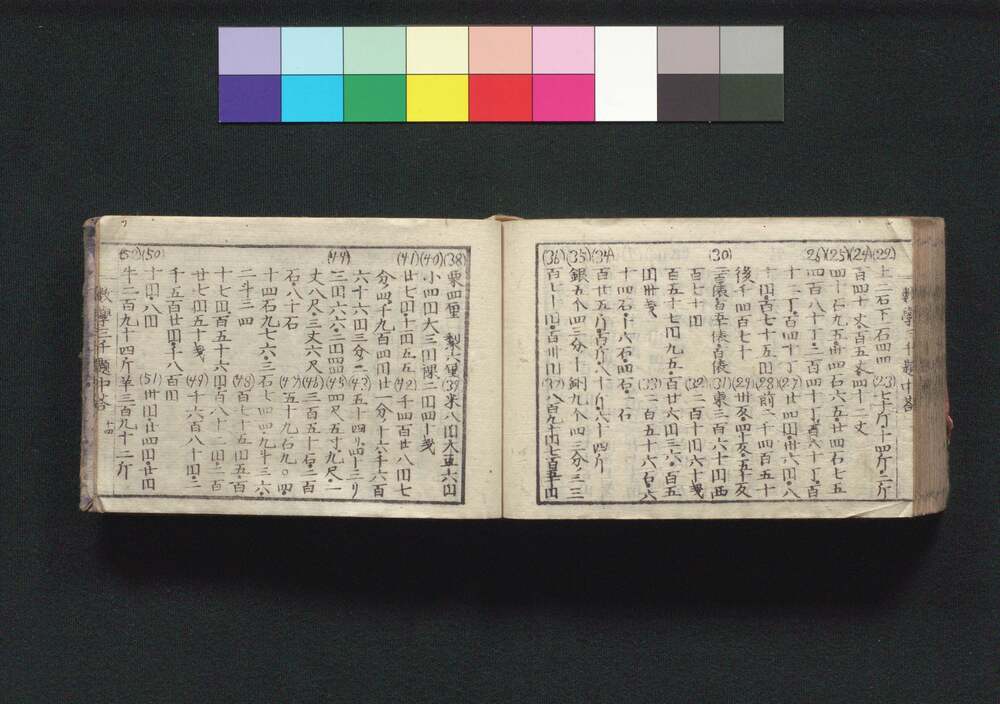 (22)上二石下石四四(23)七十斤・十四斤・二斤
(24)百四十丈百五
四十二丈
(25)四十石九五・卅四石六五廿四石七五
(26)四百八十丁・三百四十丁・百八十丁・百
十二丁・百四十丁(27)廿四円・卅六円・八
十円・百七十五円(28)前二千四百五十
後千四百七十(29)
(30)二百俵百五十俵百俵(31)東三百六十円西
百七十円(32)二百十円六十戔
百五十七円九五・百廿六円三六・百五
円卅戔(33)二百五十六石・六
十四石・十八石四石・二石
(34)百廿五斤百斤・八十斤・六十四斤
(35)銀五个四三分ノ十銅九个四三分ノ三三
(36)百七十円・百卅円(37)八百九十円七百五十円
數學三千題中答
(38)栗四里 梨六里(39)米八円大豆六円
(40)小四円大三円隊二円四十戔
(41)廿七円十四五五(42)千四百廿八円七
分ノ四・千九百四円廿一分ノ十六千六百
六十六円三分ノ二(43)五十四リ・四十三リ
(44)三円六六・二円四四(45)四尺五寸・九尺・一
丈八尺・三丈六尺(46)三百五十石・二百
石・八十石(47)五十九石九〇・四
十四石九七六・三石七四四九斗三六・
二斗三四(48)百七十五円・百
十七円・百五十六円・百八十二円・二百
廿七円五十戔(49)千六百八十円・二
千五百廿円・千八百円
(50)十円・八円(51)卅円・廿四円・廿円
(52)牛二百九十四斤羊三百九十二斤
數學三千題中答 十四